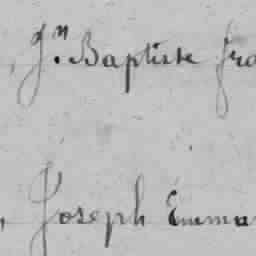 , Jn. Baptiste fra
, Joseph Emma